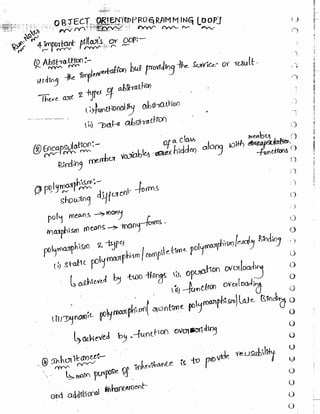 OBJECT ORIENTED PROGRAMMING [OOP]
Run Notes
4 important pillar's of OOP:-
① Abstraction:-
Hiding the implementation but providing the service or result.
There are 2 types of abstraction
(i) functionality abstraction
(ii) Data abstraction
② Encapsulation:- of a class member
Binding member variables hidden along with
functions
③ polymorphism:-
showing different forms
poly means → many
morphism means → many forms.
polymorphism 2 types
(i) static polymorphism / compile time polymorphism / early Binding
↳ achieved by two things (i), operation overloading
(ii) function overloading
(ii) Dynamic polymorphism / runtime polymorphism / Late Binding
↳ achieved by function overriding
④ Inheritance:-
↳ main purpose of inheritance is to provide reusability
and additional enhancement